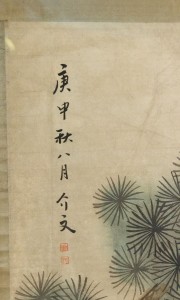 庚申秋八月介文